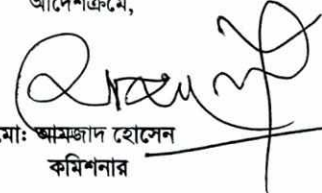 আদেশক্রমে,
মোঃ আমজাদ হোসেন
কমিশনার